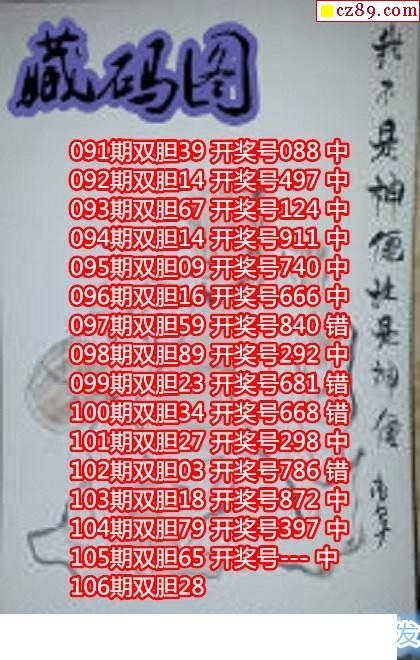 cz89.com
藏码图
091期双胆39 开奖号088 中
092期双胆14 开奖号497 中
093期双胆67 开奖号124 中
094期双胆14 开奖号911 中
095期双胆09 开奖号740 中
096期双胆16 开奖号666 中
097期双胆59 开奖号840 错
098期双胆89 开奖号292 中
099期双胆23 开奖号681 错
100期双胆34 开奖号668 错
101期双胆27 开奖号298 中
102期双胆03 开奖号786 错
103期双胆18 开奖号872 中
104期双胆79 开奖号397 中
105期双胆65 开奖号--- 中
106期双胆28
我不是神仙胜是神仙
发